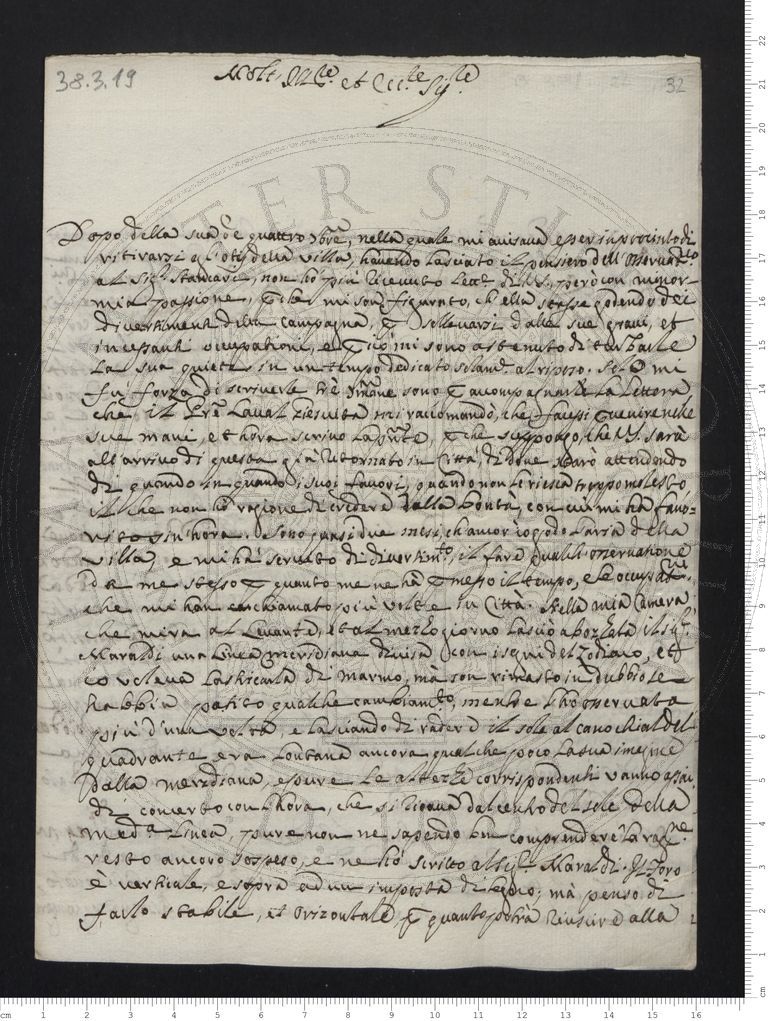 38.3.19
32
Molt' Ill.re et Ecc.te Sig.re
Dopo della sua de quattro 9bre, nella quale mi avisava esser in procinto di
ritirarsi a l'otio della villa, havendo lasciato il pensiero dell'osservat.o
al Sig.r Stancari, non hò più ricevuto lett.e di V.S., però con minor
mia passione, che mi son figurato, ch'ella stesse godendo dei
divertimenti della campagna, sollevarsi dalle sue gravi, et
incessanti occupationi, e ciò mi sono astenuto di turbarle
la sua quiete in un tempo dedicato solam.e al riposo. Se mi
fù forza di scriverle trè sono accompagnarle la lettera
che il Pre Laval Ziesuita mi raccomandò, che facessi pervenire nelle
sue mani, et hora scrivo la che suppongo, che V.S. sarà
all'arrivo di questa già ritornato in Città, di dove starò attendendo
di quando in quando i suoi favori, quando non le riesca troppo molesto
il che non hò ragione di credere dalla bontà, con cui mi hà favo=
rito sin hora. Sono quasi due mesi, ch'ancor io godo l'aria della
villa, e mi hà servito di divertim.to, il fare qualch'osservatione
da me stesso quanto me ne hà permesso il tempo, e le occupat.ni
che mi han richiamato più volte in Città. Nella mia Camera,
che mira al Levante, et al mezzo giorno lasciò abozzata il Sig.r
Maraldi una linea meridiana divisa con i segni del Zodiaco, et
io voleva lastricarla di marmo, ma son rimasto in dubbio se
habbia patito qualche cambiam.to, mentre l'hò osservata
più d'una volta, e lasciando di vedere il sole al canochial del
quadrante era lontana ancora qualche poco la sua imagine
dalla meridiana, e pure le altezze corrispondenti vanno assai
di concerto con l'hora, che si ricava dal centro del sole della
med.a linea, pure non ne sapendo ben comprendere la rag.ne
resto ancora sospeso, e ne hò scritto al Sig.r Maraldi. Il foro
è verticale, e sopra ad un imposta di legno; mà penso di
farlo stabile, et orizontale quanto potrà riuscire alla